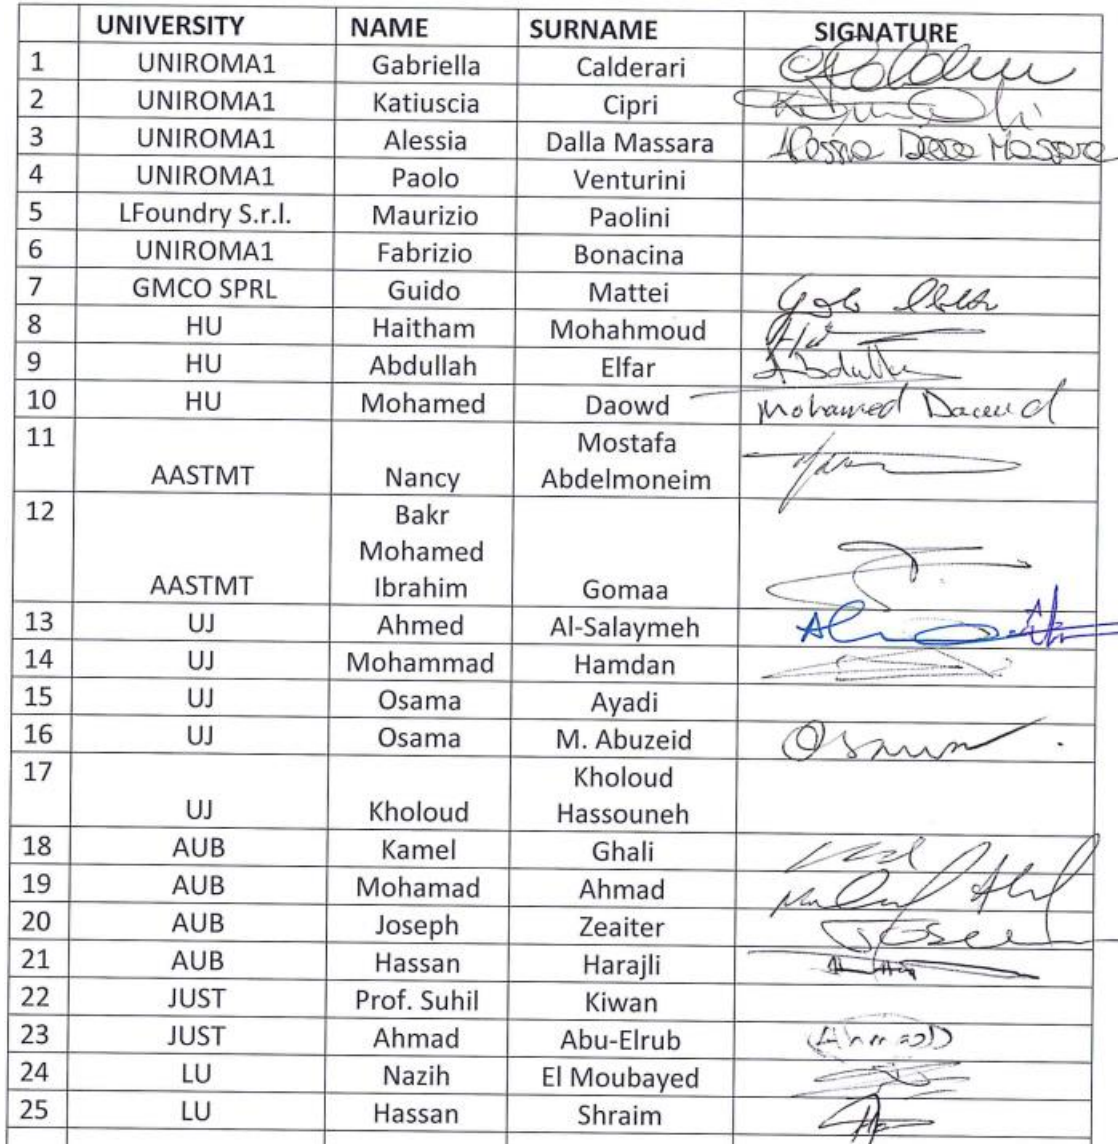 UNIVERSITY NAME SURNAME SIGNATURE
1 UNIROMA1 Gabriella Calderari
2 UNIROMA1 Katiuscia Cipri
3 UNIROMA1 Alessia Dalla Massara Alessia Dalla Massara
4 UNIROMA1 Paolo Venturini
5 LFoundry S.r.l. Maurizio Paolini
6 UNIROMA1 Fabrizio Bonacina
7 GMCO SPRL Guido Mattei
8 HU Haitham Mohahmoud
9 HU Abdullah Elfar Abdullah
10 HU Mohamed Daowd Mohamed Daowd
11 Mostafa
AASTMT Nancy Abdelmoneim
12 Bakr
Mohamed
AASTMT Ibrahim Gomaa
13 UJ Ahmed Al-Salaymeh
14 UJ Mohammad Hamdan
15 UJ Osama Ayadi
16 UJ Osama M. Abuzeid Osama
17 Kholoud
UJ Kholoud Hassouneh
18 AUB Kamel Ghali
19 AUB Mohamad Ahmad
20 AUB Joseph Zeaiter
21 AUB Hassan Harajli
22 JUST Prof. Suhil Kiwan
23 JUST Ahmad Abu-Elrub Ahmad
24 LU Nazih El Moubayed
25 LU Hassan Shraim